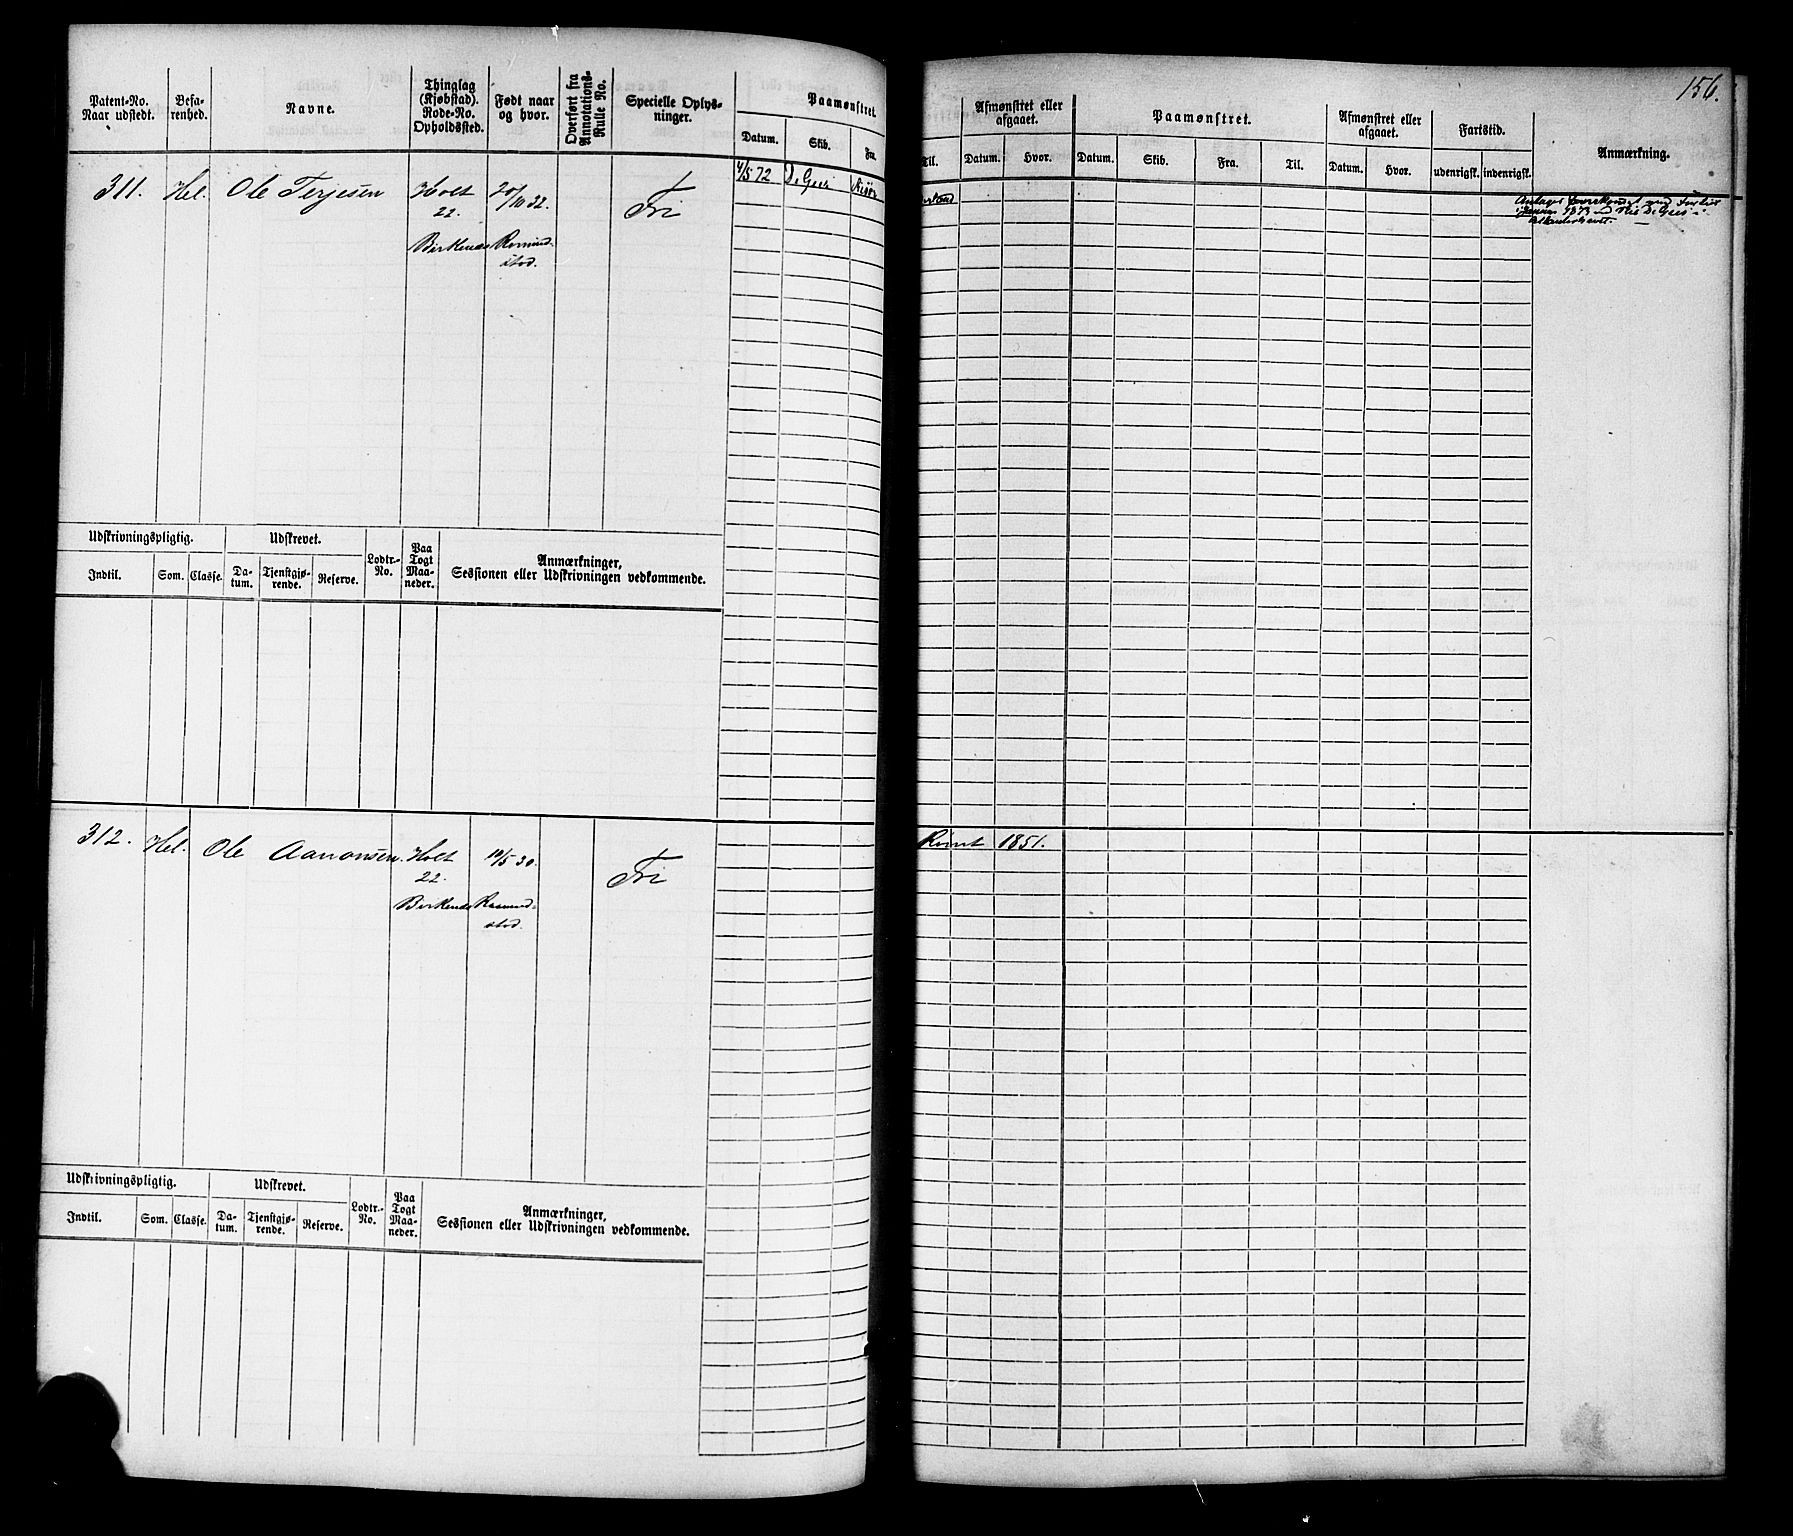 156.
Patent-No. Naar udstedt.
Befa-
renhed.
Navne.
Thinglag
(Kjøbstad).
Rode-No.
Opholdssted.
Født naar
og hvor.
Overført fra
Annotations-
Rulle No.
Specielle Oplys-
ninger.
Paamønstret.
Datum. Skib. Fra.
Til.
Afmønstret eller
afgaaet.
Datum. Hvor.
Paamønstret.
Datum. Skib. Fra. Til.
Afmønstret eller
afgaaet.
Datum. Hvor.
Fartstid.
udenrigsk. indenrigsk.
Anmærkning.
311. Hel. Ole Terjesen Holt 20/10 32. Fri 4/5 72 D. Geer
22.
Birkenes
stod.
1873
Udskrivningspligtig. Udskrevet. Lodtr.-
No. Paa
Togt
Maa-
neder. Anmærkninger,
Sessionen eller Udskrivningen vedkommende.
Indtil. Som. Classe. Da-
tum. Tjenstgjø-
rende. Reserve.
312. Hel. Ole Aanonsen. Holt 10/5 30. Fri Rømt 1851.
22.
Birkenes Raamund-
stod.
Udskrivningspligtig. Udskrevet. Lodtr.-
No. Paa
Togt
Maa-
neder. Anmærkninger,
Sessionen eller Udskrivningen vedkommende.
Indtil. Som. Classe. Da-
tum. Tjenstgjø-
rende. Reserve.